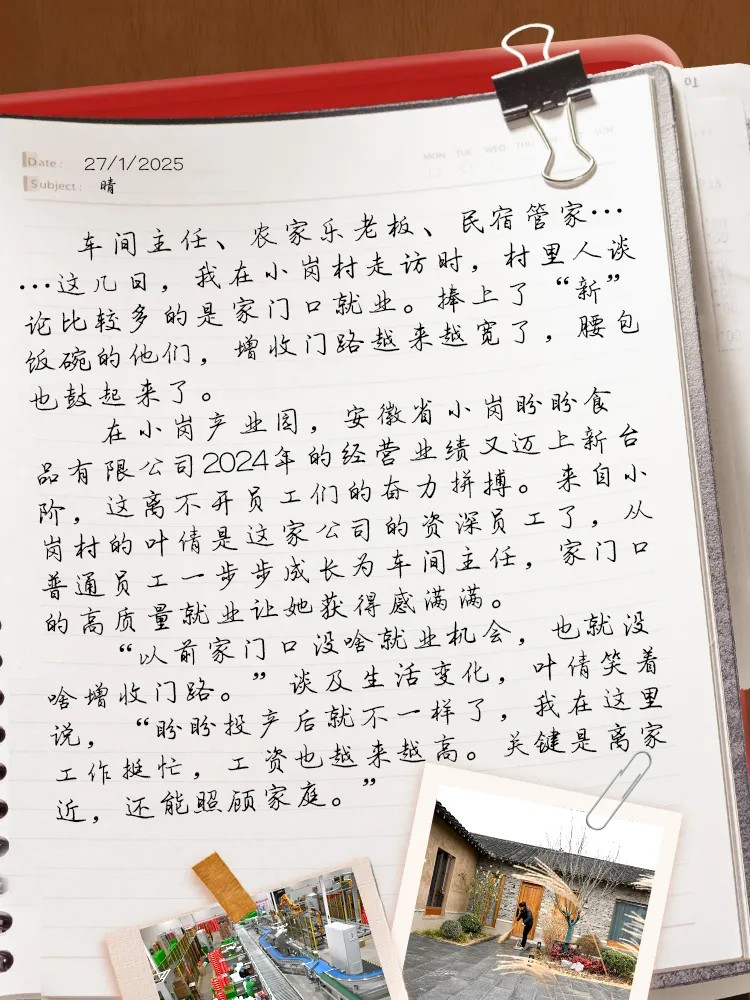 To
Date: 27/1/2025
MON TUE WED THU SUN
Subject: 晴
车间主任、农家乐老板、民宿管家…
…这几日，我在小岗村走访时，村里人谈
论比较多的是家门口就业。捧上了“新”
饭碗的他们，增收门路越来越宽了，腰包
也鼓起来了。
在小岗产业园，安徽省小岗盼盼食
品有限公司2024年的经营业绩又迈上新台
阶，这离不开员工们的奋力拼搏。来自小
岗村的叶倩是这家公司的资深员工了，从
普通员工一步步成长为车间主任，家门口
的高质量就业让她获得感满满。
“以前家门口没啥就业机会，也就没
啥增收门路。”谈及生活变化，叶倩笑着
说，“盼盼投产后就不一样了，我在这里
工作挺忙，工资也越来越高。关键是离家
近，还能照顾家庭。”